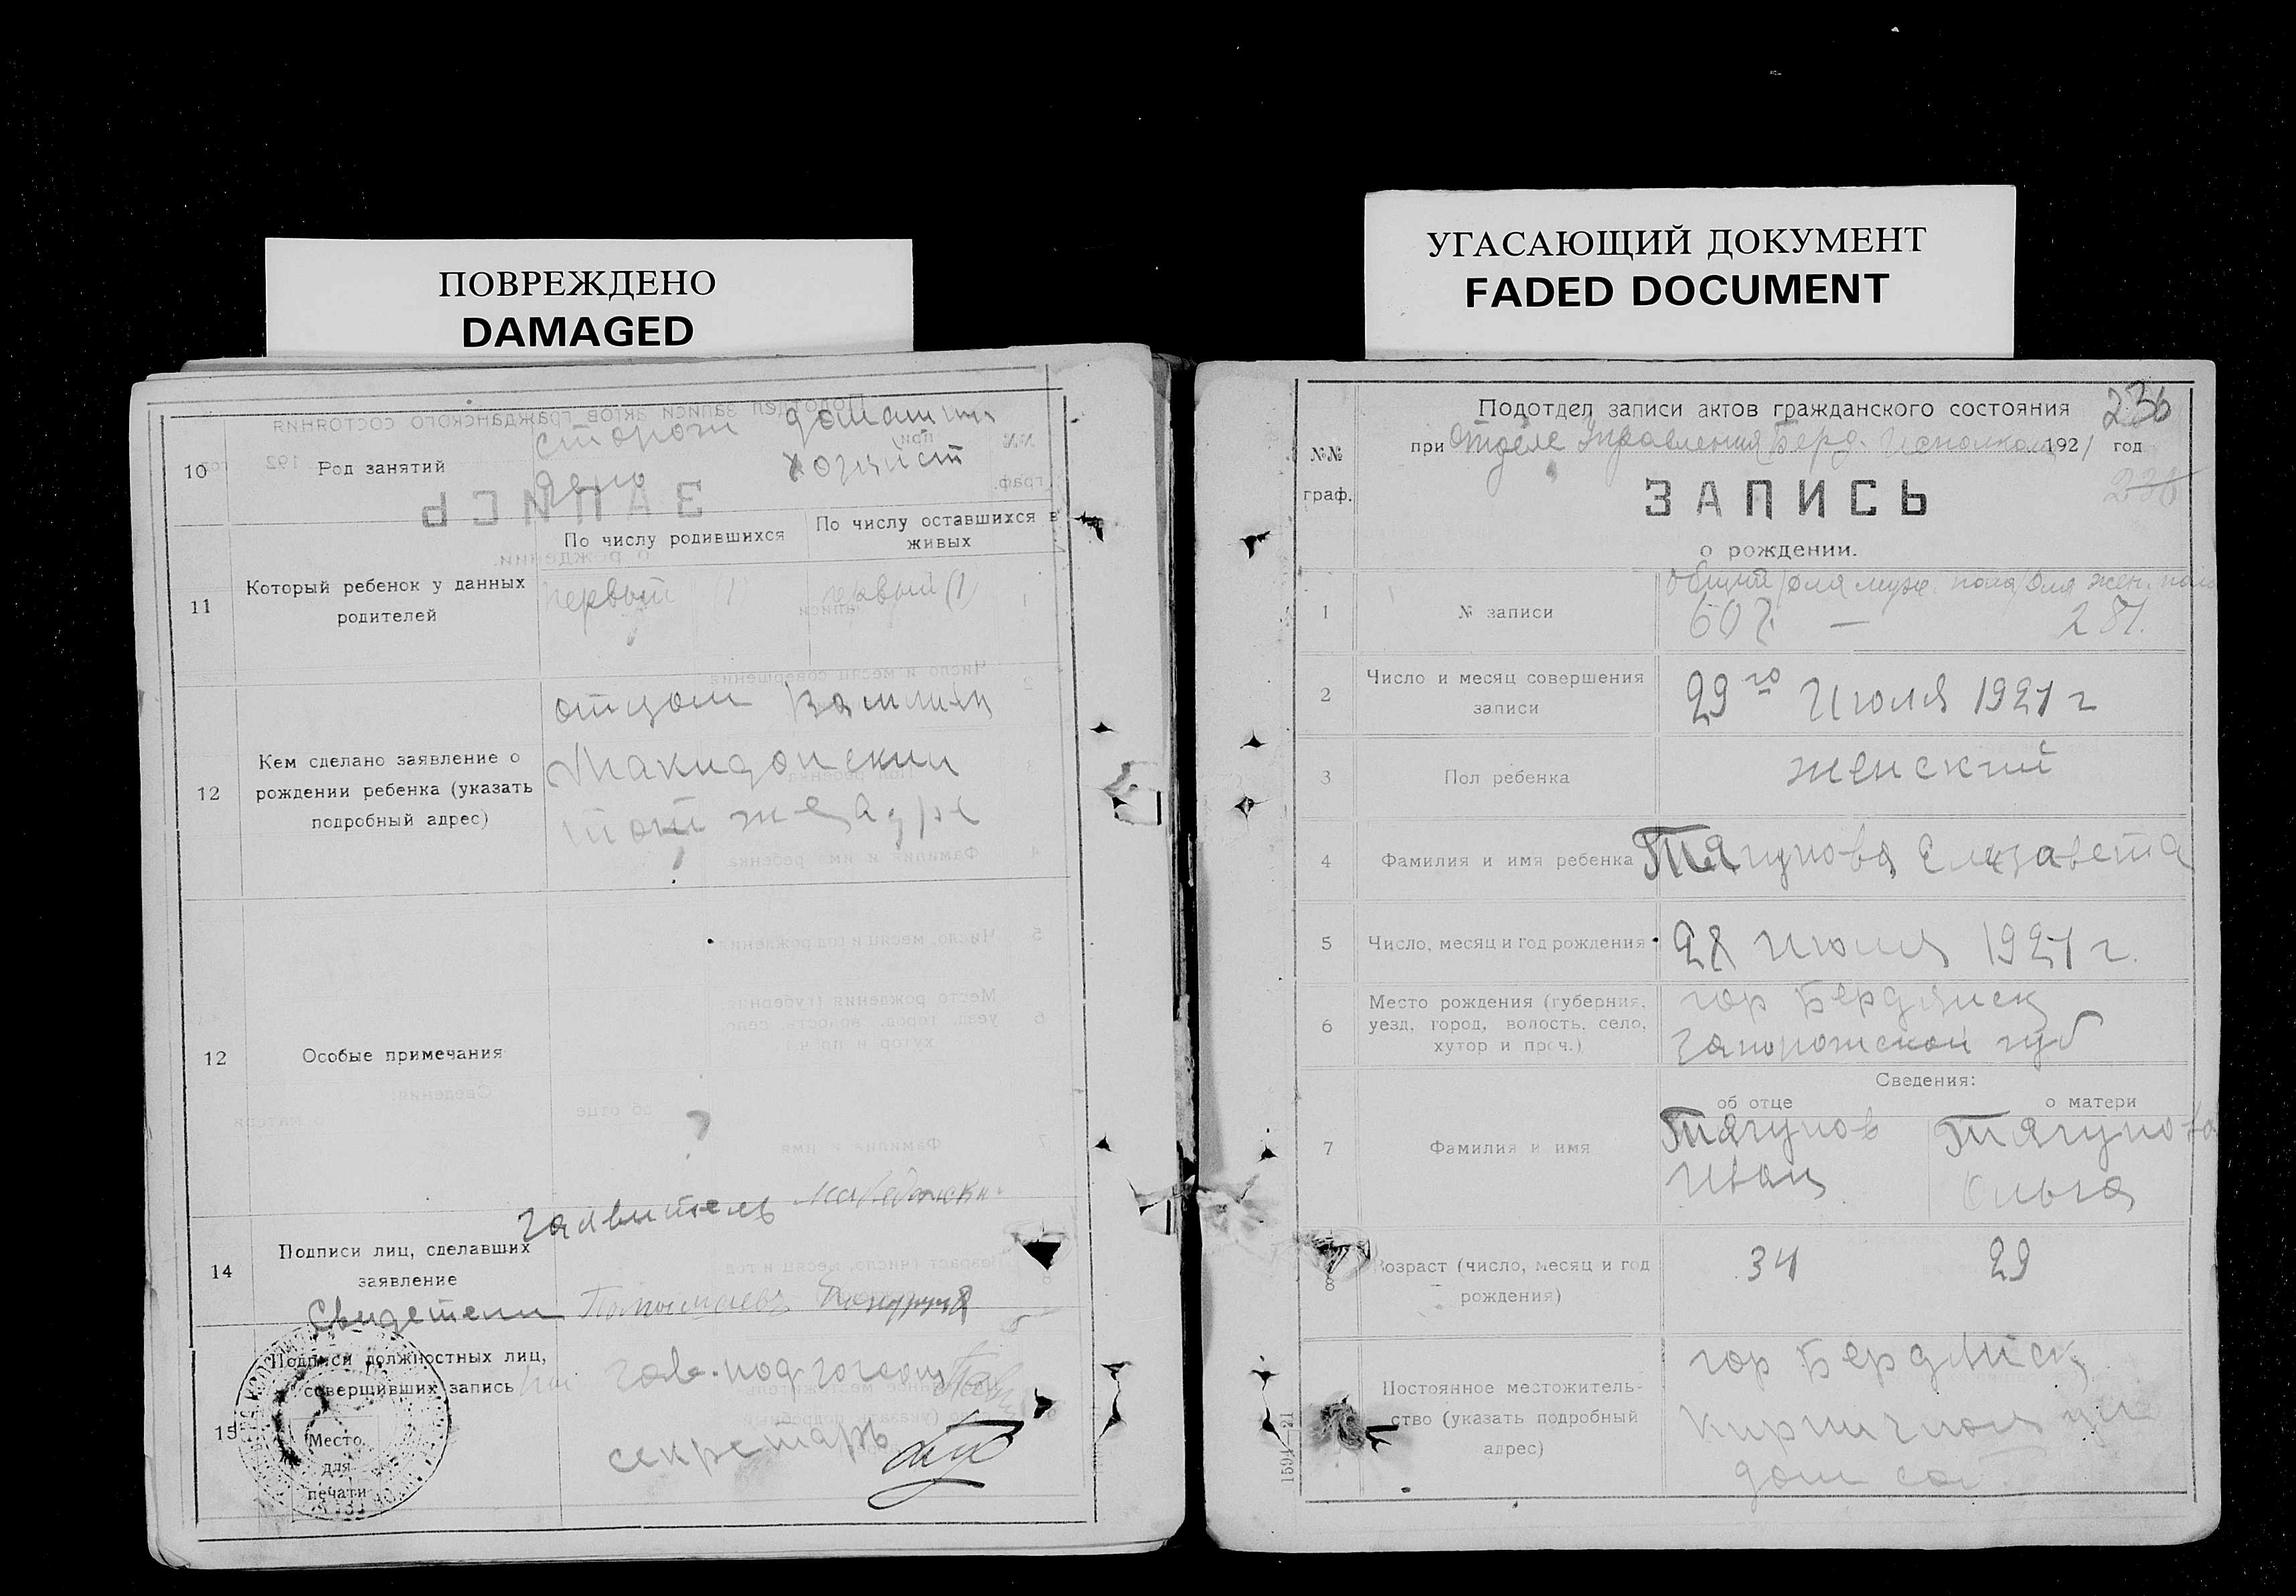 ПОВРЕЖДЕНО
DAMAGED
10
Род занятий
сторож
депо
хозяйст
По числу родившихся
По числу оставшихся в
живых
11
Который ребенок у данных
родителей
первый (1)
первый (1)
12
Кем сделано заявление о
рождении ребенка (указать
подробный адрес)
отцом
Макидонский
тот же адре
12
Особые примечания
Заявитель
14
Подписи лиц, сделавших
заявление
Свидетели
15
Подписи должностных лиц,
совершивших запись
Зав. подзагсом
секретарь
Место
для
печати
УГАСАЮЩИЙ ДОКУМЕНТ
FADED DOCUMENT
236
№№
граф.
Подотдел записи актов гражданского состояния
при Отделе Управления Берд. Исполкома 1921 год
ЗАПИСЬ
о рождении.
общий для муж. пола для жен. пола
1
№ записи
607 — 281.
2
Число и месяц совершения
записи
29го Июля 1921 г
3
Пол ребенка
женский
4
Фамилия и имя ребенка
Тягунова Елизавета
5
Число, месяц и год рождения
28 июля 1921 г.
6
Место рождения (губерния,
уезд, город, волость, село,
хутор и проч.)
гор Бердянск
Запорожской губ
Сведения:
об отце
о матери
7
Фамилия и имя
Тягунов
Иван
Тягунова
Ольга
8
Возраст (число, месяц и год
рождения)
34
29
Постоянное местожитель-
ство (указать подробный
адрес)
гор Бердянск
Кирпичная ул
дом
1594—21